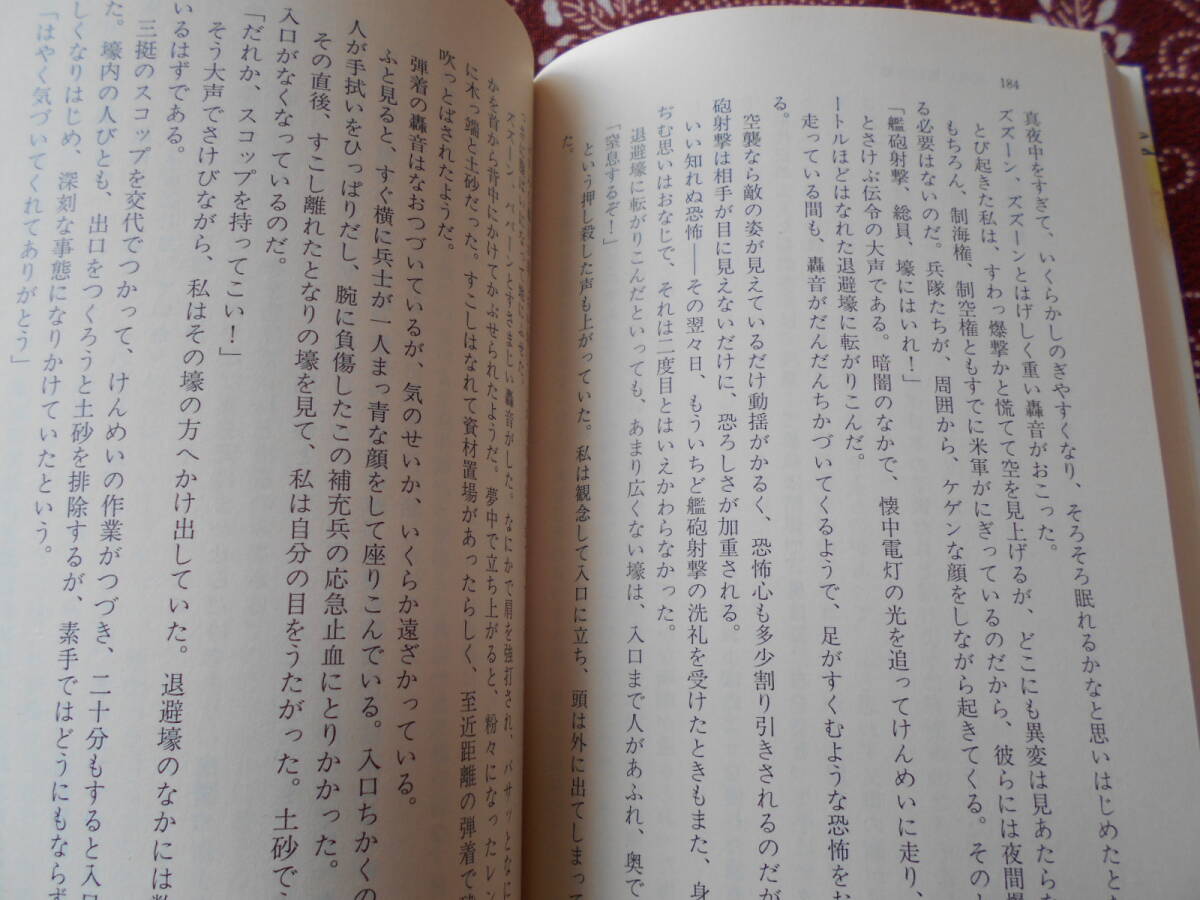 184
真夜中をすぎて、いくらかしのぎやすくなり、そろそろ眠れるかなと思いはじめたと
ズズーン、ズズーンとはげしく重い轟音がおこった。
とび起きた私は、すわっ爆撃かと慌てて空を見上げるが、どこにも異変は見あたらな
もちろん、制海権、制空権ともすでに米軍がにぎっているのだから、彼らには夜間爆
る必要はないのだ。兵隊たちが、周囲から、ケゲンな顔をしながら起きてくる。そのし
「艦砲射撃、総員、壕にはいれ！」
とさけぶ伝令の大声である。暗闇のなかで、懐中電灯の光を追ってけんめいに走り、
ートルほどはなれた退避壕に転がりこんだ。
走っている間も、轟音がだんだんちかづいてくるようで、足がすくむような恐怖をお
る。
空襲なら敵の姿が見えているだけ動揺がかるく、恐怖心も多少割り引きされるのだが
砲射撃は相手が目に見えないだけに、恐ろしさが加重される。
いい知れぬ恐怖――その翌々日、もういちど艦砲射撃の洗礼を受けたときもまた、身
ぢむ思いはおなじで、それは二度目とはいえかわらなかった。
退避壕に転がりこんだといっても、あまり広くない壕は、入口まで人があふれ、奥で
「窒息するぞ！」
という押し殺した声も上がっていた。私は観念して入口に立ち、頭は外に出てしまって
た。
ズズーン、バーンとすさまじい轟音がした。なにかで肩を強打され、バサッとなに
かを首から背中にかけてかぶせられたようだ。夢中で立ち上がると、粉々になったレン
に木っ端と土砂だった。すこしはなれて資材置場があったらしく、至近距離の弾着で
吹っとばされたようだ。
弾着の轟音はなおつづいているが、気のせいか、いくらか遠ざかっている。
ふと見ると、すぐ横に兵士が一人まっ青な顔をして座りこんでいる。入口ちかくの
人が手拭いをひっぱりだし、腕に負傷したこの補充兵の応急止血にとりかかった。
その直後、すこし離れたとなりの壕を見て、私は自分の目をうたがった。土砂で
入口がなくなっているのだ。
「だれか、スコップを持ってこい！」
そう大声でさけびながら、私はその壕の方へかけ出していた。退避壕のなかには
いるはずである。
三挺のスコップを交代でつかって、けんめいの作業がつづき、二十分もすると入口
た。壕内の人びとも、出口をつくろうと土砂を排除するが、素手ではどうにもならず
しくなりはじめ、深刻な事態になりかけていたという。
「はやく気づいてくれてありがとう」